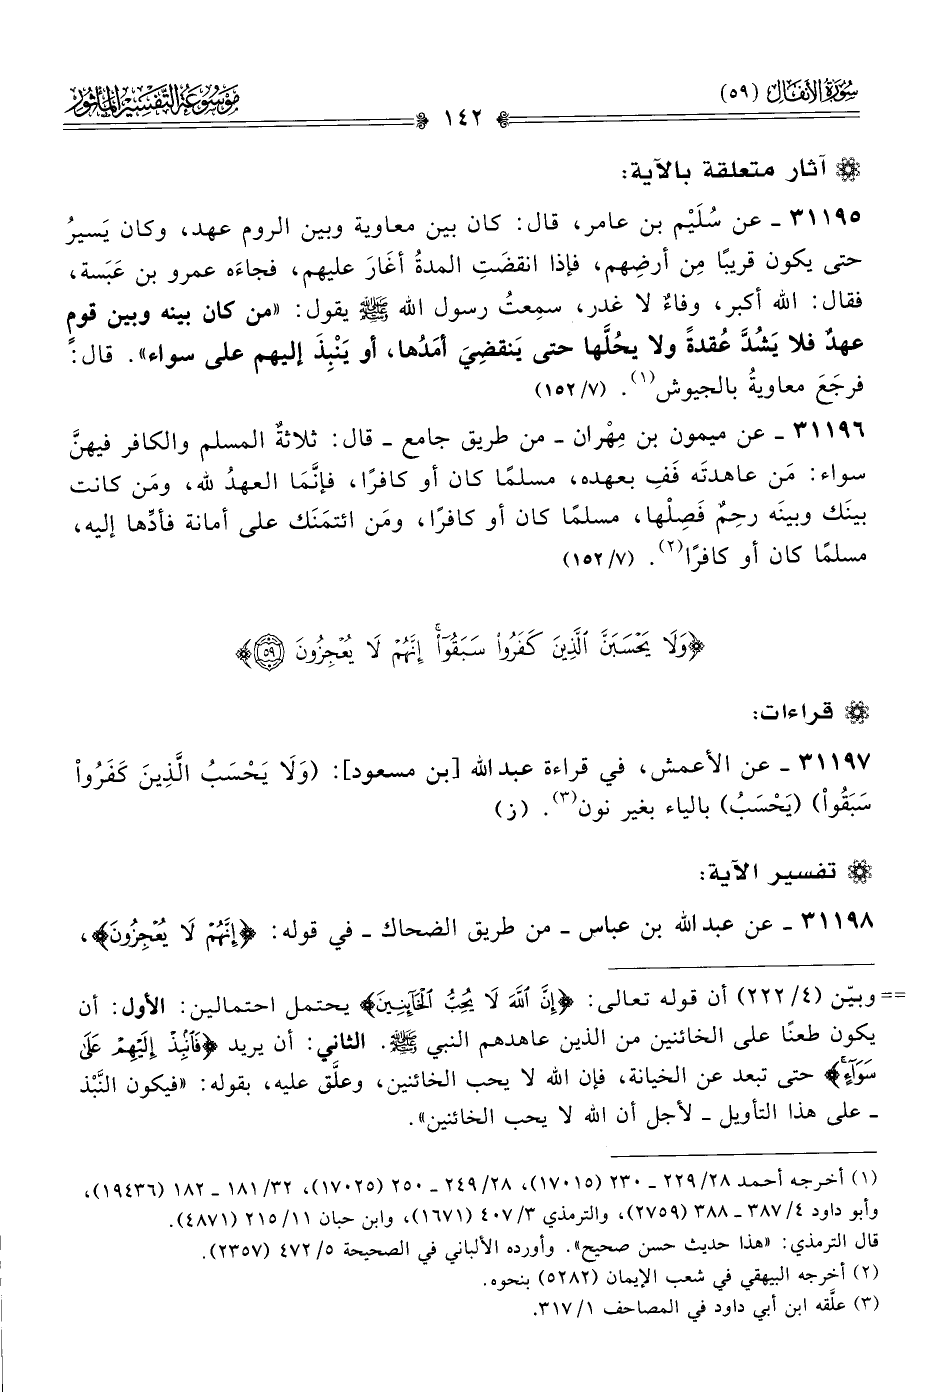 سُورَةُ الأَنفَال (٥٩)
١٤٢
مَوْسُوعَةُ التَّفْسِيرِ المَأْثُور
آثار متعلقة بالآية:
٣١١٩٥ ـ عن سُلَيْم بن عامر، قال: كان بين معاوية وبين الروم عهد، وكان يَسيرُ
حتى يكون قريبًا مِن أرضِهم، فإذا انقضَتِ المدةُ أغَارَ عليهم، فجاءَه عمرو بن عَبَسة،
فقال: الله أكبر، وفاءٌ لا غدر، سمِعتُ رسول الله ﷺ يقول: «من كان بينه وبين قومٍ
عهدٌ فلا يَشُدَّ عُقدةً ولا يحُلَّها حتى يَنقضِيَ أمَدُها، أو يَنْبِذَ إليهم على سواء». قال:
فرجَعَ معاويةُ بالجيوش(١). (٧/ ١٥٢)
٣١١٩٦ ـ عن ميمون بن مِهْران ـ من طريق جامع ـ قال: ثلاثةٌ المسلم والكافر فيهنَّ
سواء: مَن عاهدتَه فَفِ بعهده، مسلمًا كان أو كافرًا، فإنَّما العهدُ لله، ومَن كانت
بينَك وبينَه رحِمٌ فَصِلْها، مسلمًا كان أو كافرًا، ومَن ائتمَنَك على أمانة فأدِّها إليه،
مسلمًا كان أو كافرًا(٢). (٧/ ١٥٢)
﴿وَلَا يَحْسَبَنَّ ٱلَّذِينَ كَفَرُوا۟ سَبَقُوٓا۟ۚ إِنَّهُمْ لَا يُعْجِزُونَ ٥٩﴾
قراءات:
٣١١٩٧ ـ عن الأعمش، في قراءة عبد الله [بن مسعود]: (وَلَا يَحْسَبُ الَّذِينَ كَفَرُوا۟
سَبَقُوا۟) (يَحْسَبُ) بالياء بغير نون(٣). (ز)
تفسير الآية:
٣١١٩٨ ـ عن عبد الله بن عباس ـ من طريق الضحاك ـ في قوله: ﴿إِنَّهُمْ لَا يُعْجِزُونَ﴾،
== وبيّن (٤/ ٢٢٢) أن قوله تعالى: ﴿إِنَّ ٱللَّهَ لَا يُحِبُّ ٱلْخَآئِنِينَ﴾ يحتمل احتمالين: الأول: أن
يكون طعنًا على الخائنين من الذين عاهدهم النبي ﷺ. الثاني: أن يريد ﴿فَٱنۢبِذْ إِلَيْهِمْ عَلَىٰ
سَوَآءٍۚ﴾ حتى تبعد عن الخيانة، فإن الله لا يحب الخائنين، وعلَّق عليه، بقوله: «فيكون النَّبْذ
ـ على هذا التأويل ـ لأجل أن الله لا يحب الخائنين».
(١) أخرجه أحمد ٢٨/ ٢٢٩ ـ ٢٣٠ (١٧٠١٥)، ٢٨/ ٢٤٩ ـ ٢٥٠ (١٧٠٢٥)، ٣٢/ ١٨١ ـ ١٨٢ (١٩٤٣٦)،
وأبو داود ٤/ ٣٨٧ ـ ٣٨٨ (٢٧٥٩)، والترمذي ٣/ ٤٠٧ (١٦٧١)، وابن حبان ١١/ ٢١٥ (٤٨٧١).
قال الترمذي: «هذا حديث حسن صحيح». وأورده الألباني في الصحيحة ٥/ ٤٧٢ (٢٣٥٧).
(٢) أخرجه البيهقي في شعب الإيمان (٥٢٨٢) بنحوه.
(٣) علَّقه ابن أبي داود في المصاحف ١/ ٣١٧.